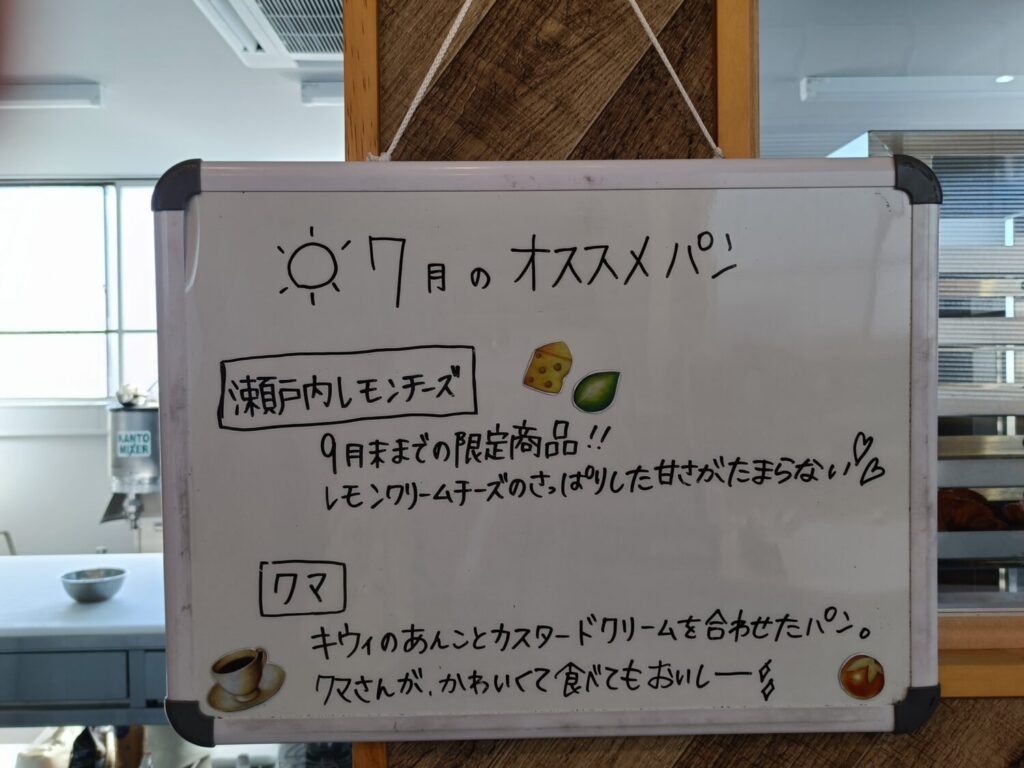 7月のオススメパン
瀬戸内レモンチーズ
9月末までの限定商品!!
レモンクリームチーズのさっぱりした甘さがたまらない♡♡
クマ
キウィのあんことカスタードクリームを合わせたパン。
クマさんが、かわいくて食べてもおいしー
KANTO
MIXER